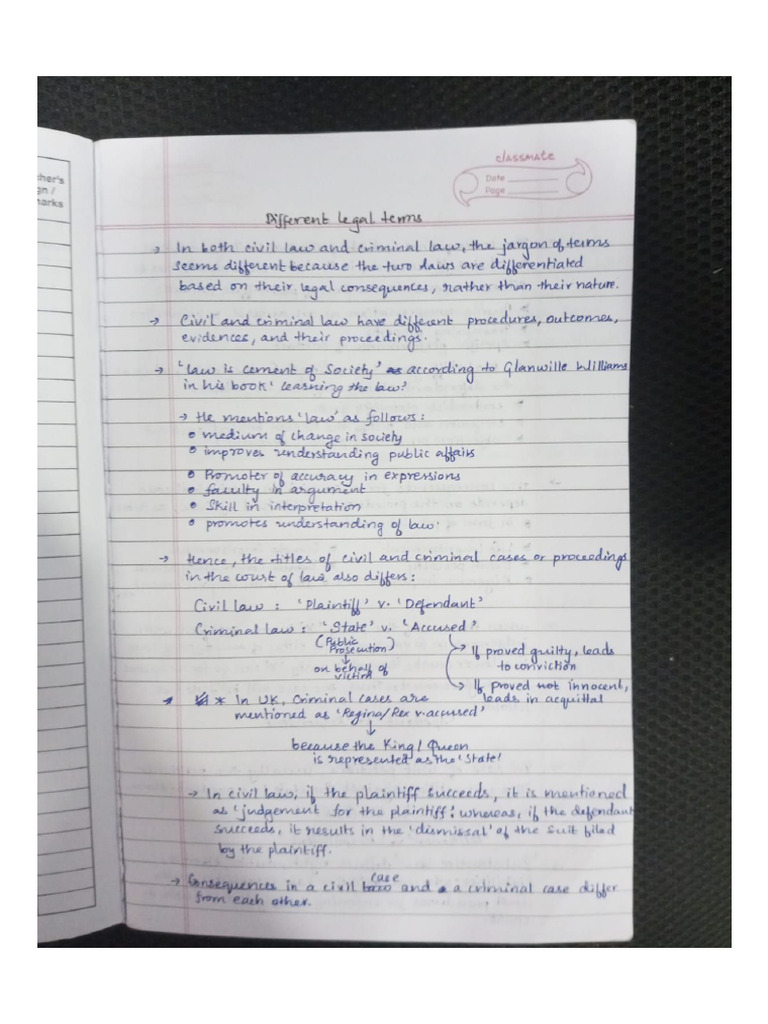 cher's
gn /
marks
classmate
Date
Page
Different legal terms
→ In both civil law and criminal law, the jargon of terms
seems different because the two laws are differentiated
based on their legal consequences, rather than their nature.
→ Civil and criminal law have different procedures, outcomes,
evidences, and their proceedings.
→ 'Law is cement of Society' as according to Glanville Williams
in his book 'Learning the law'.
→ He mentions 'law' as follows:
• medium of change in society
• improves understanding public affairs
• Promoter of accuracy in expressions
• faculty in argument
• Skill in interpretation
• promotes understanding of law.
→ Hence, the titles of civil and criminal cases or proceedings
in the court of law also differs:
Civil law : 'Plaintiff' v. 'Defendant'
Criminal law : 'State' v. 'Accused'
(Public Prosecution) → If proved guilty, leads
to conviction
↓ on behalf of victim → If proved not innocent,
leads in acquittal
* In UK, Criminal cases are
mentioned as 'Regina/Rex v. accused'
↓
because the King/Queen
is represented as the 'State'
→ In civil law, if the plaintiff succeeds, it is mentioned
as 'judgement for the plaintiff'; whereas, if the defendant
succeeds, it results in the 'dismissal' of the suit filed
by the plaintiff.
→ Consequences in a civil case and a criminal case differ
from each other.